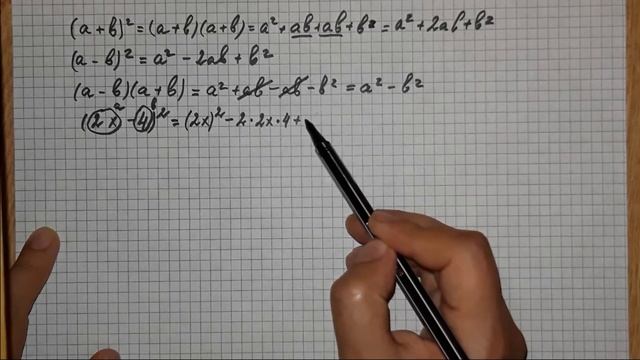 (a + b)² = (a+b)(a+b) = a² + ab + ab + b² = a² + 2ab + b²
(a - b)² = a² - 2ab + b²
(a - b)(a + b) = a² + ab - ab - b² = a² - b²
a b
(2x - 4)² = (2x)² - 2·2x·4 +